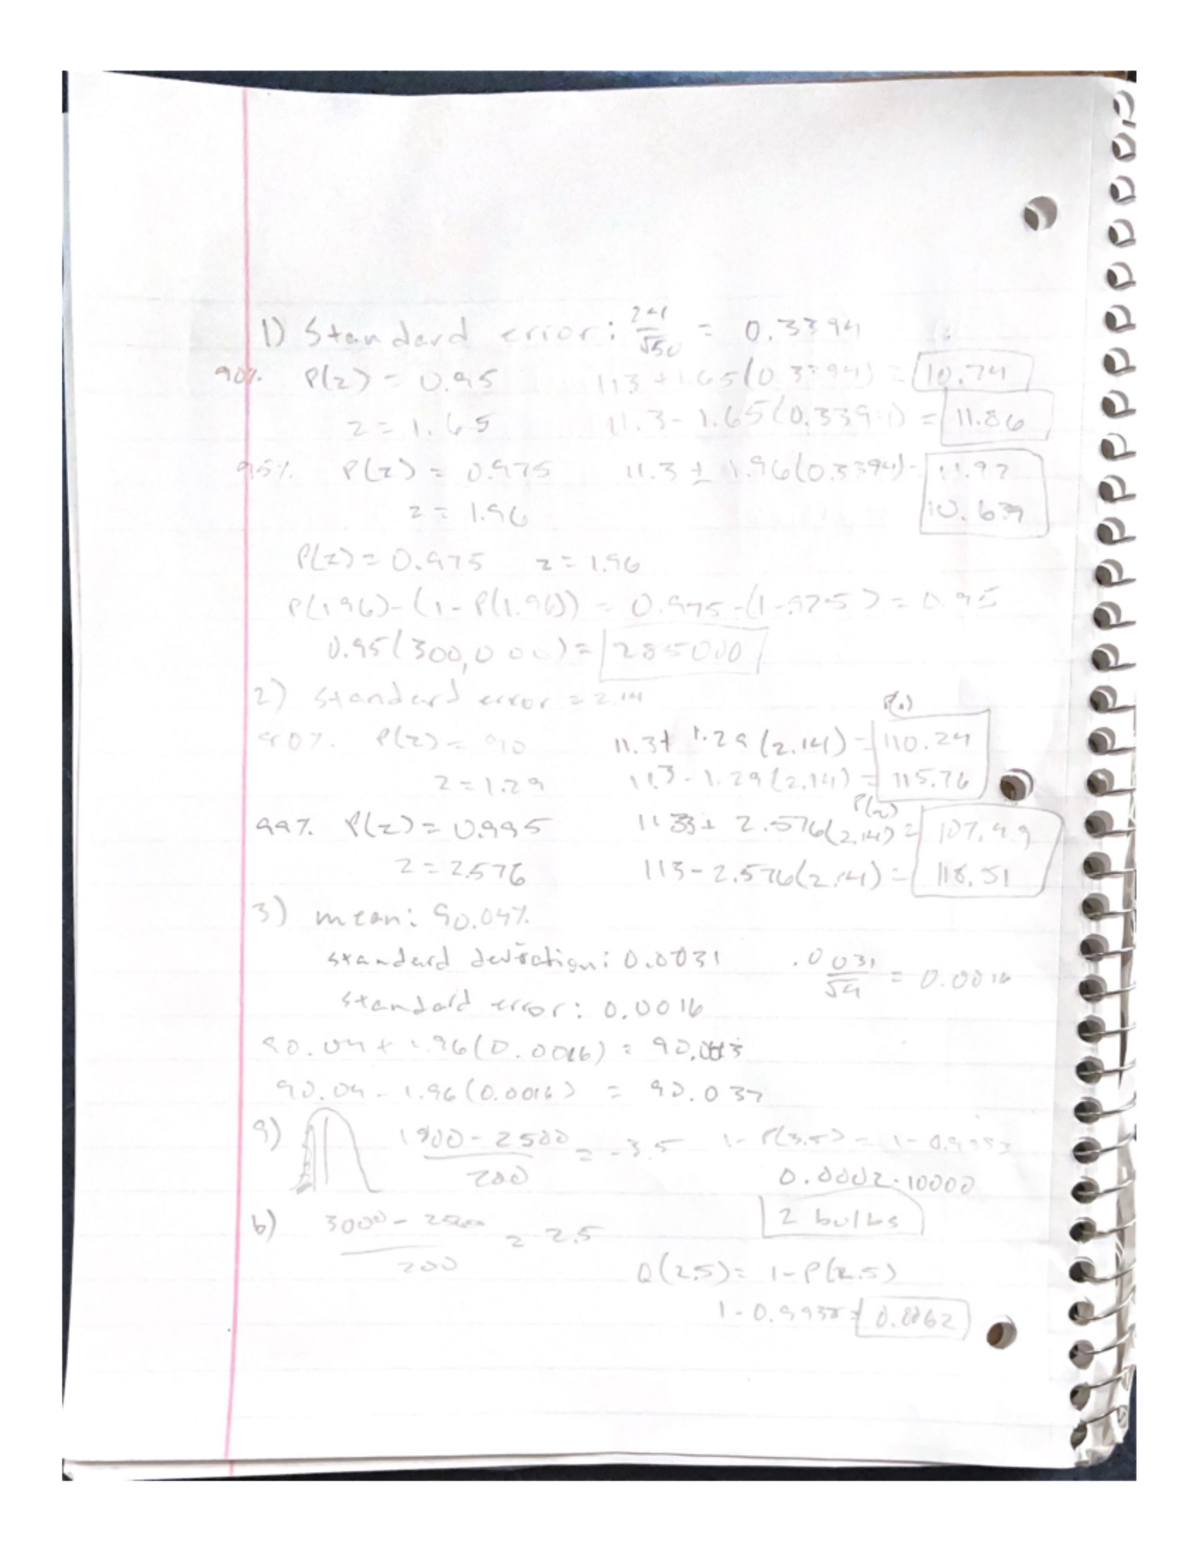 1) Standard error: 2.4/√50 = 0.3394
90% P(z) = 0.95 11.3 + 1.65(0.3394) = 10.74
z = 1.65 11.3 - 1.65(0.3394) = 11.86
95% P(z) = 0.975 11.3 ± 1.96(0.3394) = 11.97
z = 1.96 10.639
P(z) = 0.975 z = 1.96
P(1.96) - (1 - P(1.96)) = 0.975 - (1 - .975) = 0.95
0.95(300,000) = 285000
2) Standard error = 2.14
P(z)
80% P(z) = .90 11.3+ 1.29(2.14) = 110.24
z = 1.29 113 - 1.29(2.14) = 115.76
P(z)
99% P(z) = 0.995 2.576(2.14) = 107.49
z = 2.576 113 - 2.576(2.14) = 118.51
3) mean: 90.04%
standard deviation: 0.0031 .0031/√4 = 0.0016
standard error: 0.0016
90.04 + 1.96(0.0016) = 90.043
90.04 - 1.96(0.0016) = 90.037
1800 - 2500/200 = -3.5 1 - P(3.5) = 1 -
0.0002 · 10000
2 bulbs
b) 3000 - 2500/200 = 2.5
Q(2.5) = 1 - P(2.5)
1 - 0.9938 = 0.0062